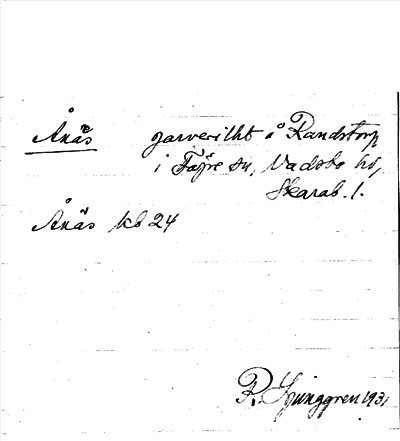 Ånäs garveritkt å Randstorp
i Fägre sn, Vadsbo hd,
Skarab. l.
Ånäs kb 24
R. Ljunggren 1931